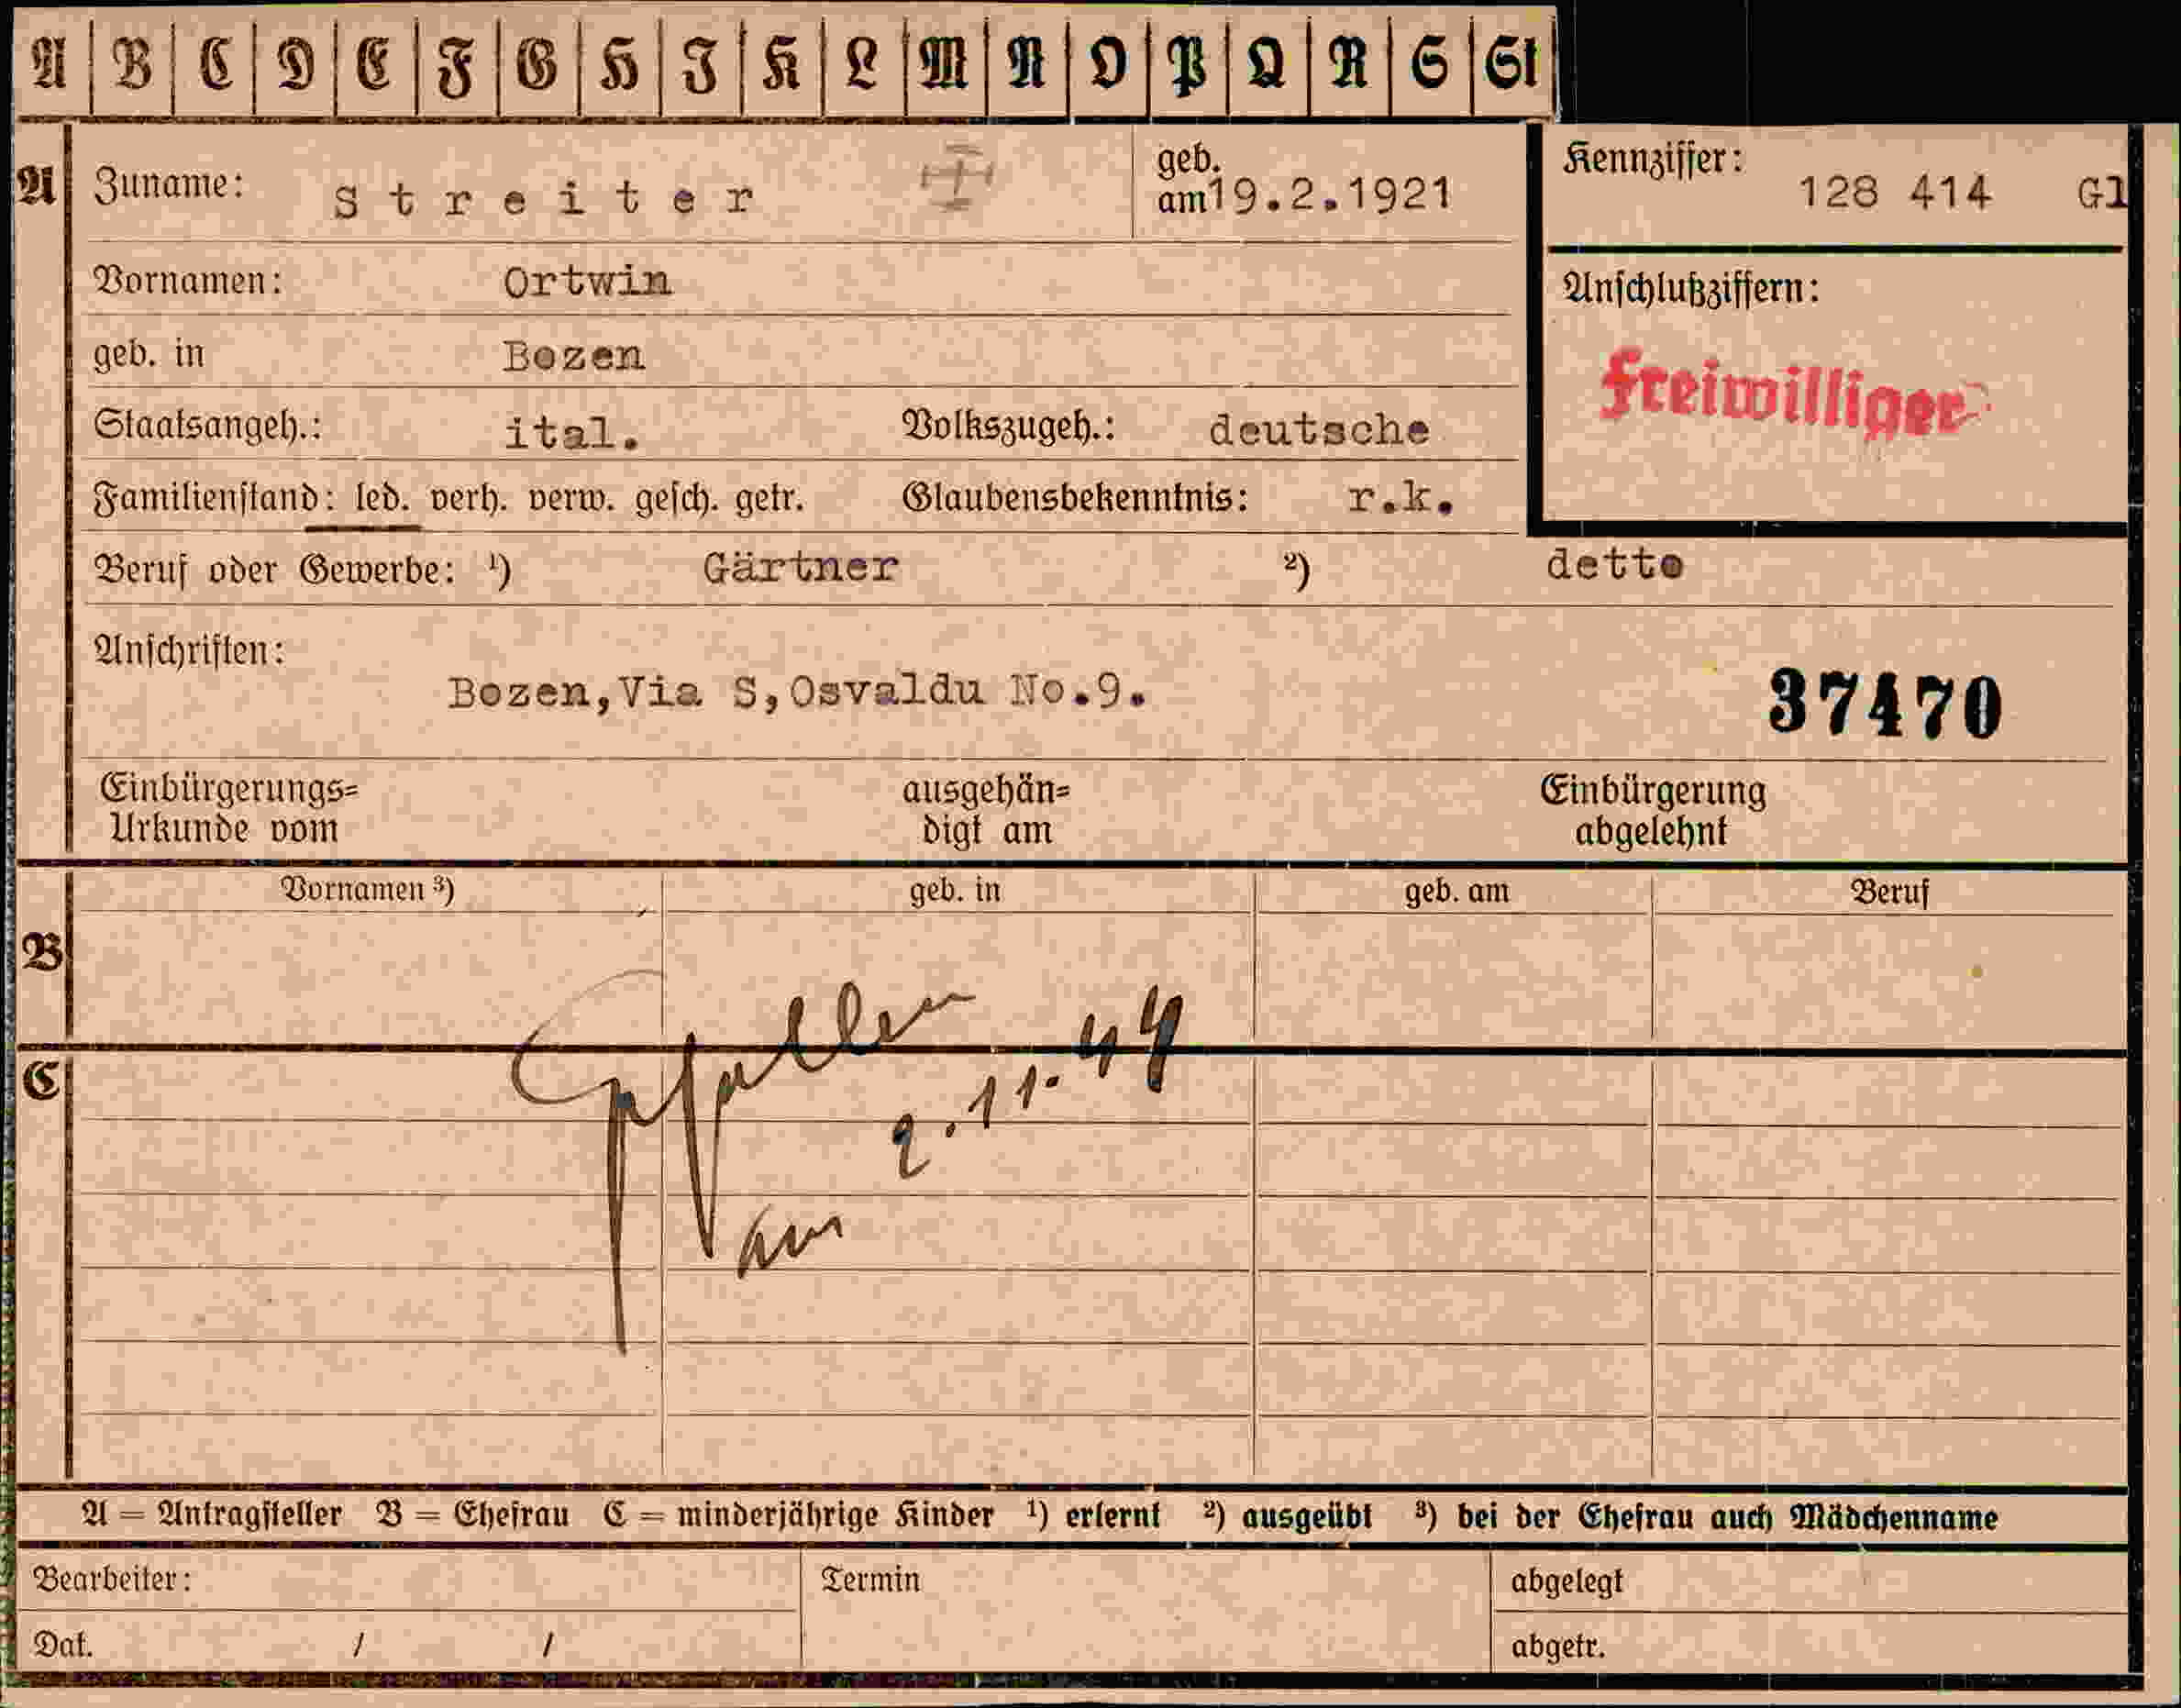 A B C D E F G H I K L M N O P Q R S St
A Zuname: Streiter geb. am 19.2.1921 Kennziffer: 128 414 Gl
Vornamen: Ortwin Anschlußziffern:
geb. in Bozen Freiwilliger
Staatsangeh.: ital. Volkszugeh.: deutsche
Familienstand: led. verh. verw. gesch. getr. Glaubensbekenntnis: r.k.
Beruf oder Gewerbe: ¹) Gärtner ²) detto
Anschriften:
Bozen,Via S,Osvaldu No.9. 37470
Einbürgerungs= ausgehän= Einbürgerung
Urkunde vom digt am abgelehnt
Vornamen ³) geb. in geb. am Beruf
B
C
Gefallen
am 2.11.44
A = Antragsteller B = Ehefrau C = minderjährige Kinder ¹) erlernt ²) ausgeübt ³) bei der Ehefrau auch Mädchenname
Bearbeiter: Termin abgelegt
Dat. / / abgetr.